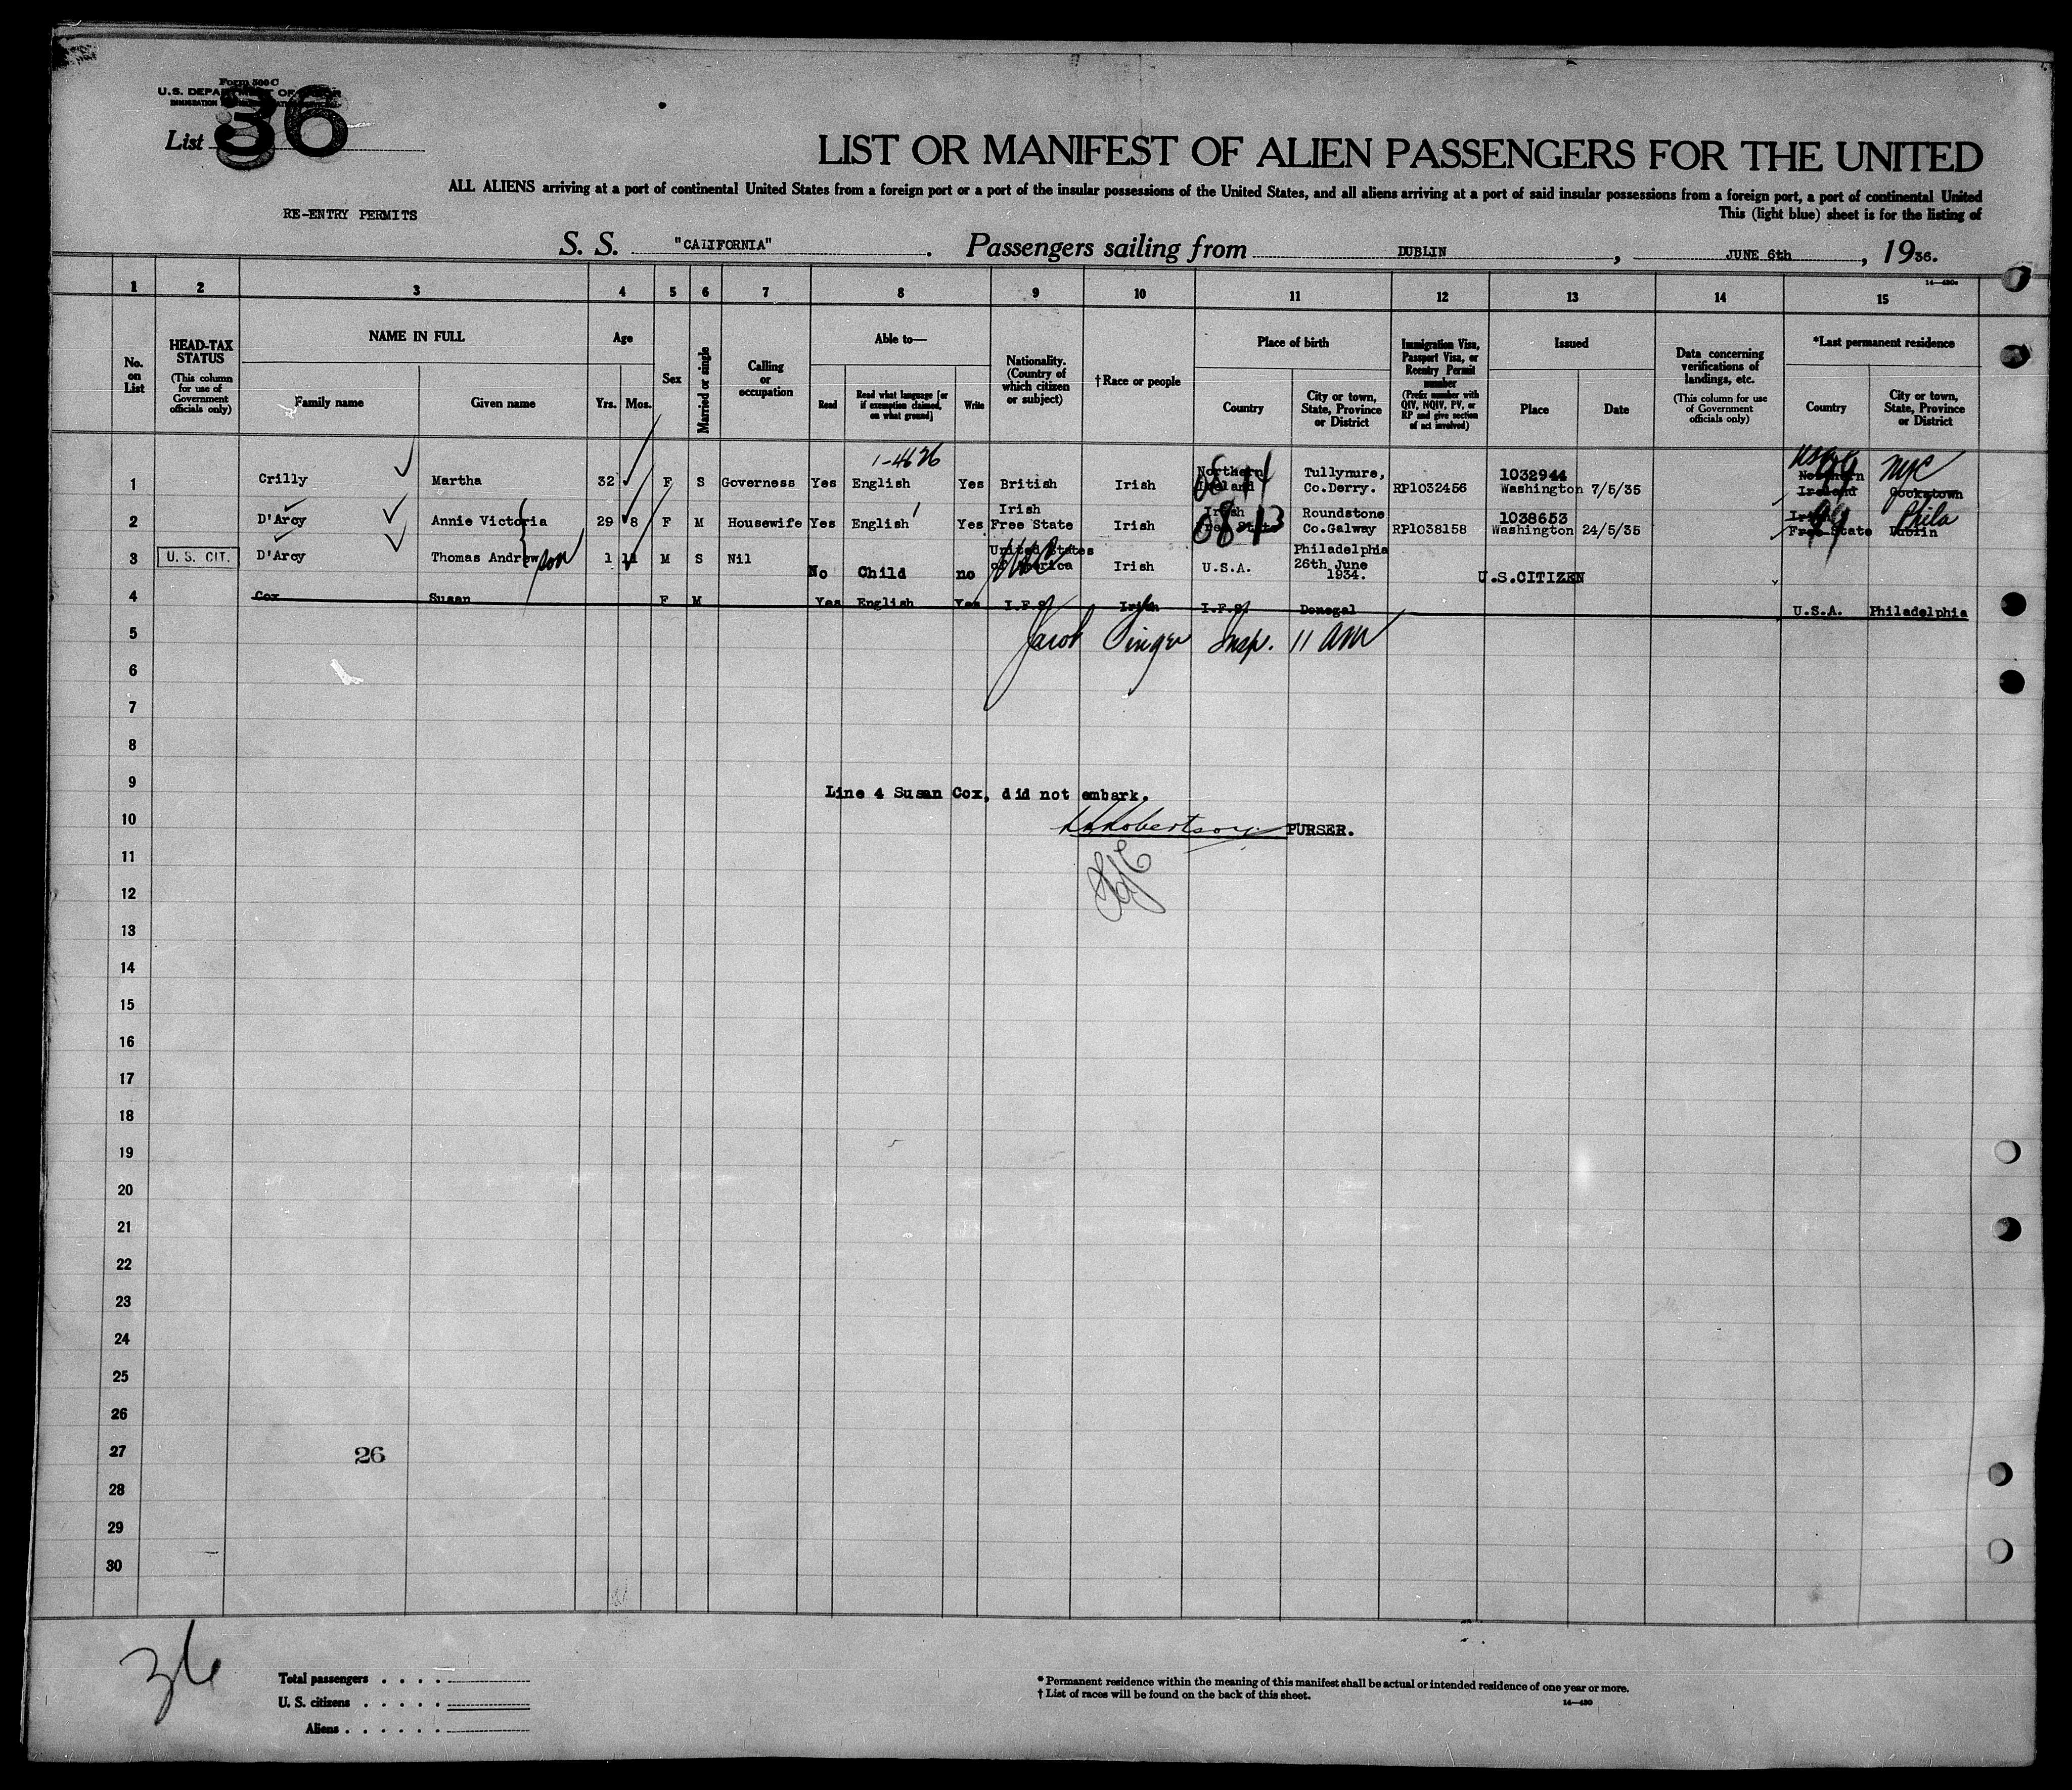 Form 500 C
U. S. DEPARTMENT OF LABOR
List 36
LIST OR MANIFEST OF ALIEN PASSENGERS FOR THE UNITED
ALL ALIENS arriving at a port of continental United States from a foreign port or a port of the insular possessions of the United States, and all aliens arriving at a port of said insular possessions from a foreign port, a port of continental United
This (light blue) sheet is for the listing of
RE-ENTRY PERMITS
S. S. "CALIFORNIA". Passengers sailing from DUBLIN, JUNE 6th, 1936.
1 2 3 4 5 6 7 8 9 10 11 12 13 14 15
No. on List
HEAD-TAX STATUS (This column for use of Government officials only)
NAME IN FULL
Family name
Given name
Age
Yrs. Mos.
Sex
Married or single
Calling or occupation
Able to—
Read
Read what language [or if exemption claimed, on what ground]
Write
Nationality. (Country of which citizen or subject)
† Race or people
Place of birth
Country
City or town, State, Province or District
Immigration Visa, Passport Visa, or Reentry Permit number (Prefix number with QIV, NQIV, PV, or RP and give section of act involved)
Issued
Place
Date
Data concerning verifications of landings, etc. (This column for use of Government officials only)
*Last permanent residence
Country
City or town, State, Province or District
1-4626
1 Crilly Martha 32 F S Governess Yes English Yes British Irish Northern Ireland Tullymre, Co.Derry. RP1032456 1032944 Washington 7/5/35 Northern Ireland Cookstown NYC
2 D'Arcy Annie Victoria 29 8 F M Housewife Yes English Yes Irish Free State Irish Irish Free State Roundstone Co.Galway RP1038158 1038653 Washington 24/5/35 Irish Free State Dublin Phila
3 U. S. CIT. D'Arcy Thomas Andrew son 1 11 M S Nil No Child no United States of America Irish U.S.A. Philadelphia 26th June 1934. U.S.CITIZEN
4 Cox Susan F M Yes English Yes I.F.S. Irish I.F.S. Donegal U.S.A. Philadelphia
5 Jacob Insp. 11 am
6
7
8
9 Line 4 Susan Cox, did not embark.
10 Robertson PURSER.
11
12
13
14
15
16
17
18
19
20
21
22
23
24
25
26
27 26
28
29
30
36
Total passengers
U. S. citizens
Aliens
* Permanent residence within the meaning of this manifest shall be actual or intended residence of one year or more.
† List of races will be found on the back of this sheet.
14—430